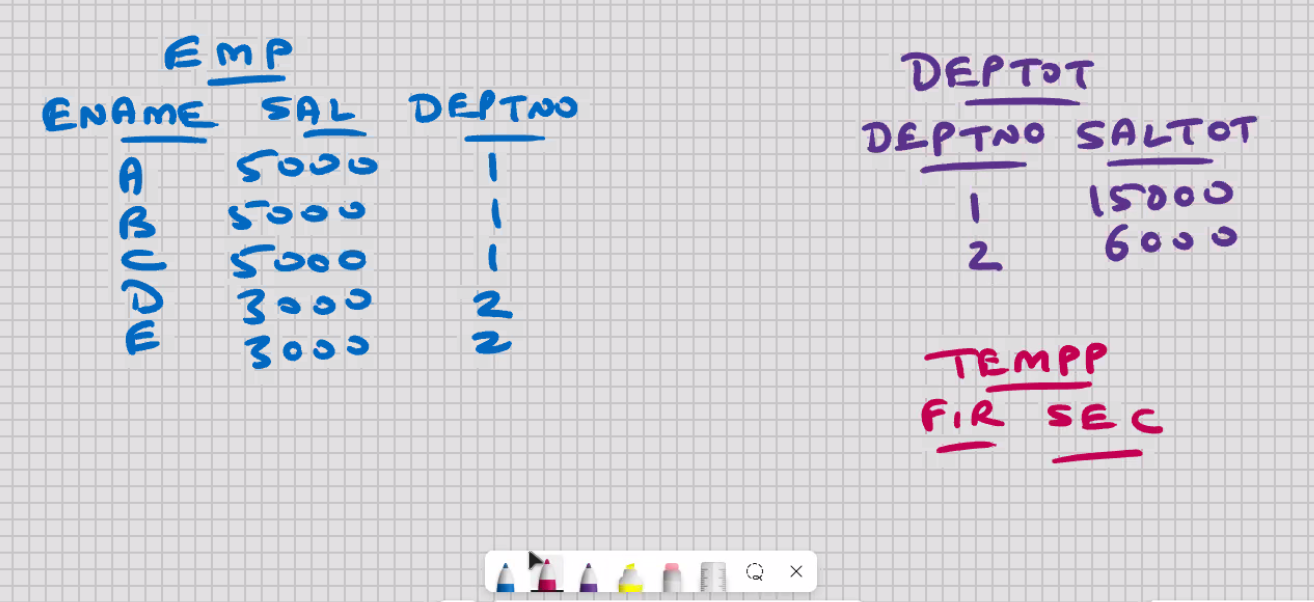 EMP
ENAME SAL DEPTNO
A 5000 1
B 5000 1
C 5000 1
D 3000 2
E 3000 2
DEPTOT
DEPTNO SALTOT
1 15000
2 6000
TEMPP
FIR SEC